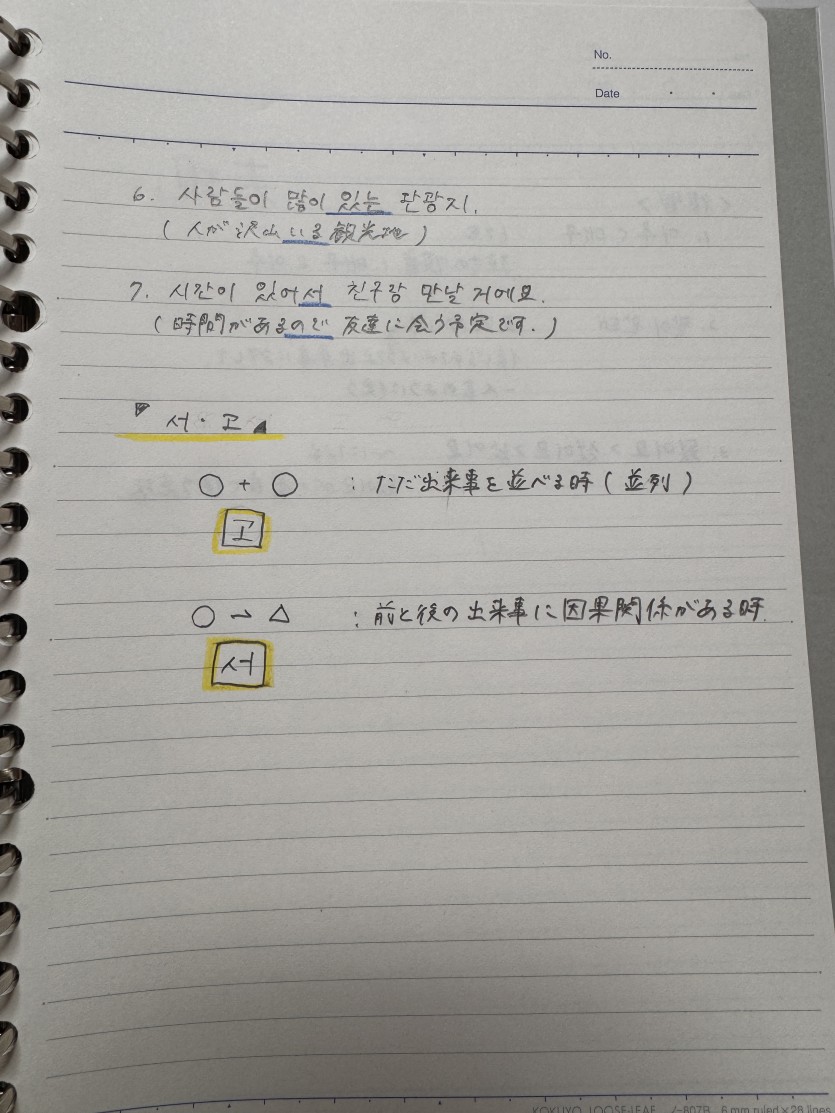 No.
Date
6. 사람들이 많이 있는 관광지.
(人が沢山いる観光地)
7. 시간이 있어서 친구랑 만날 거에요.
(時間があるので友達に会う予定です.)
서・고
○ + ○ : ただ出来事を並べる時 (並列)
고
○ → △ : 前と後の出来事に因果関係がある時.
서
KOKUYO LOOSE-LEAF ノ-807B 6 mm ruled × 28 lines